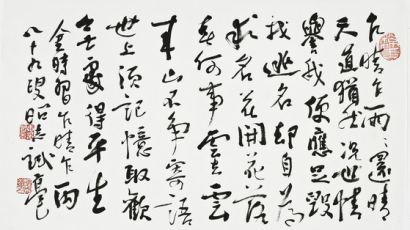 乍晴乍雨雨還晴
天道猶然況世情
譽我便應是毀
我逃名却自為
求名花開花落
春何事雲雲
來山不爭寄語
世上須記憶取歡
無處得平生
金時習乍晴乍雨
八十九叟